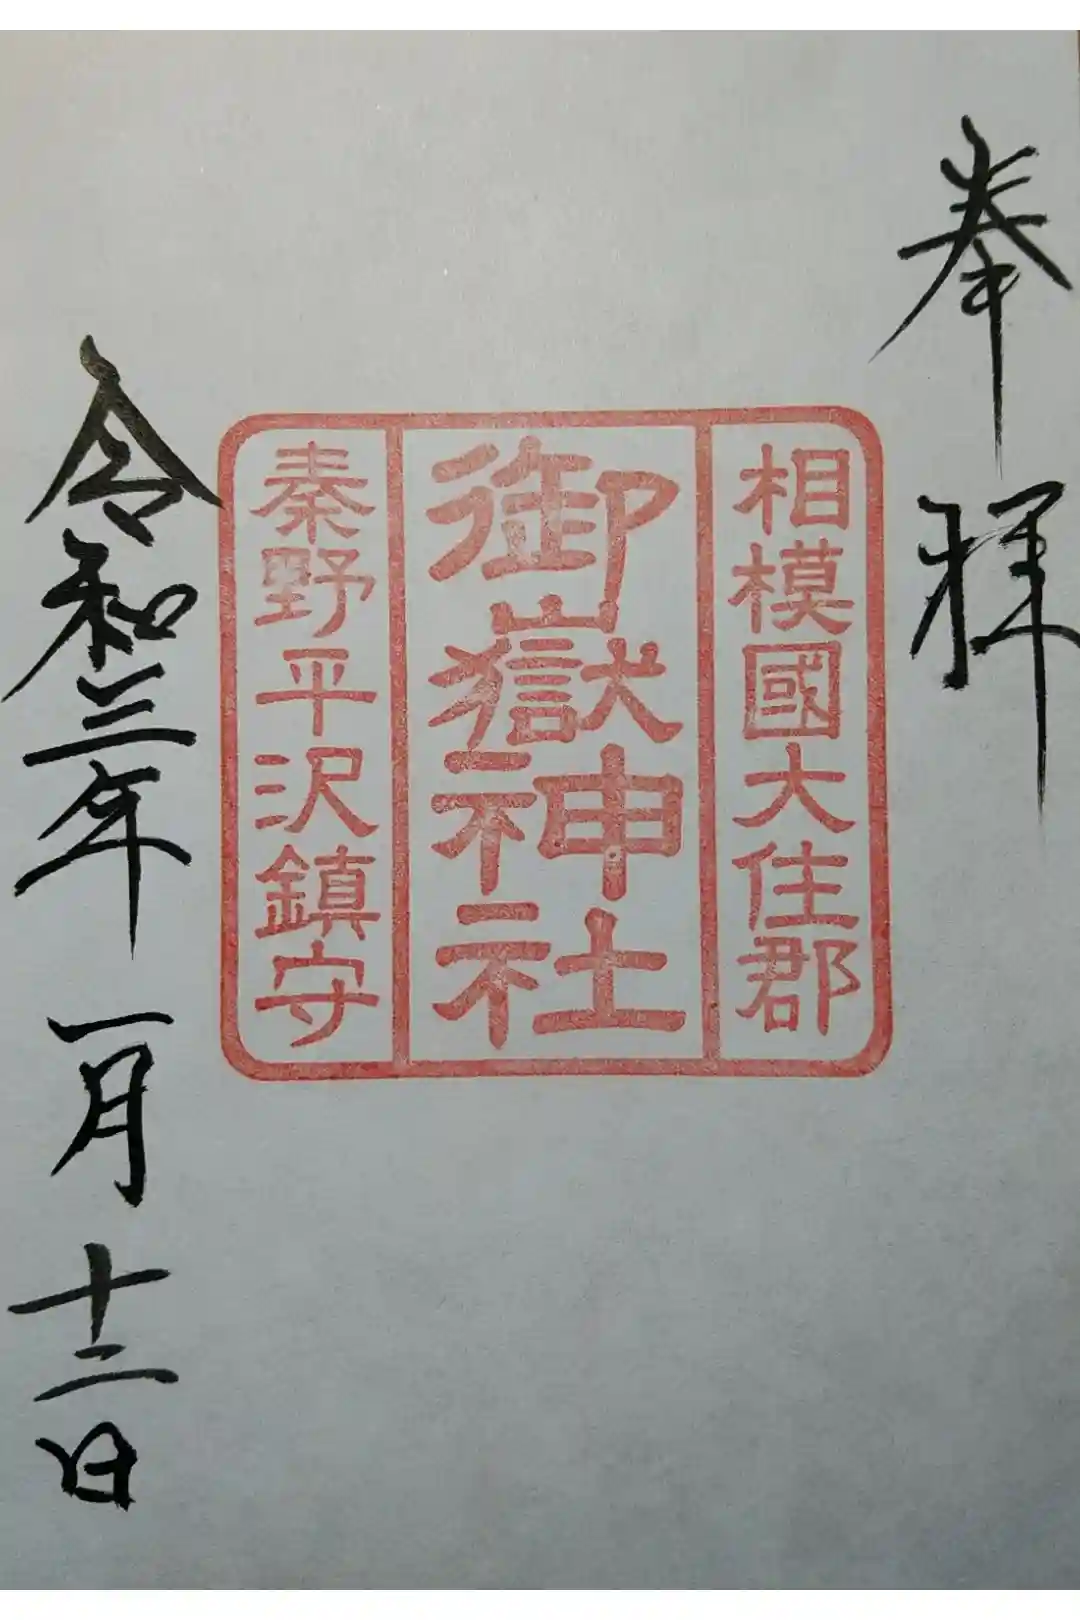 奉拝
相模國大住郡
御嶽神社
秦野平沢鎮守
令和三年一月十二日